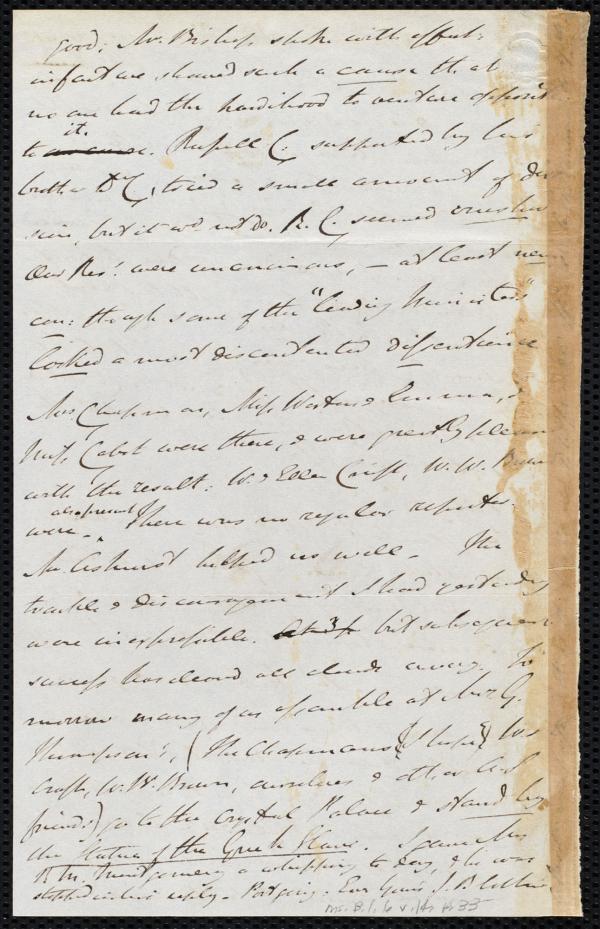 good; Mr. Bishop spoke with effect:
in fact we shewed such a cause that
no one had the hardihood to venture opposit
to it. Russell C. supported by his
brother Dr C, tried a small amount of
but it wd not do. R. C. seemed
Our Res.s were unanimous, — at least nem
con: though some of the "leading Ministers"
looked a most discontented dissentience
Mrs Chapman, Miss Weston & Emma, &
Miss Cabot were there, & were greatly please
with the result: W. & Ellen Craft, W. W. Brown
were also present. There was no regular reporter.
Mr Ashurst helped us well. The
trouble & discouragement I had yesterday
were inexpressible. but subsequent
success has cleared all clouds away. To
morrow many of us assemble at Mr G.
Thompson's, (The Chapmans (I hope) the
Crafts, W. W. Brown, ourselves & other
friends) go to the Crystal Palace & stand by
the statue of the Greek Slave. I gave Mr
R. M. Montgomery a whipping to day, & he was
stopped in his reply. Post going. Ever yours J. B. Estlin
Ms. B. 1. 6 v. 14 p 33